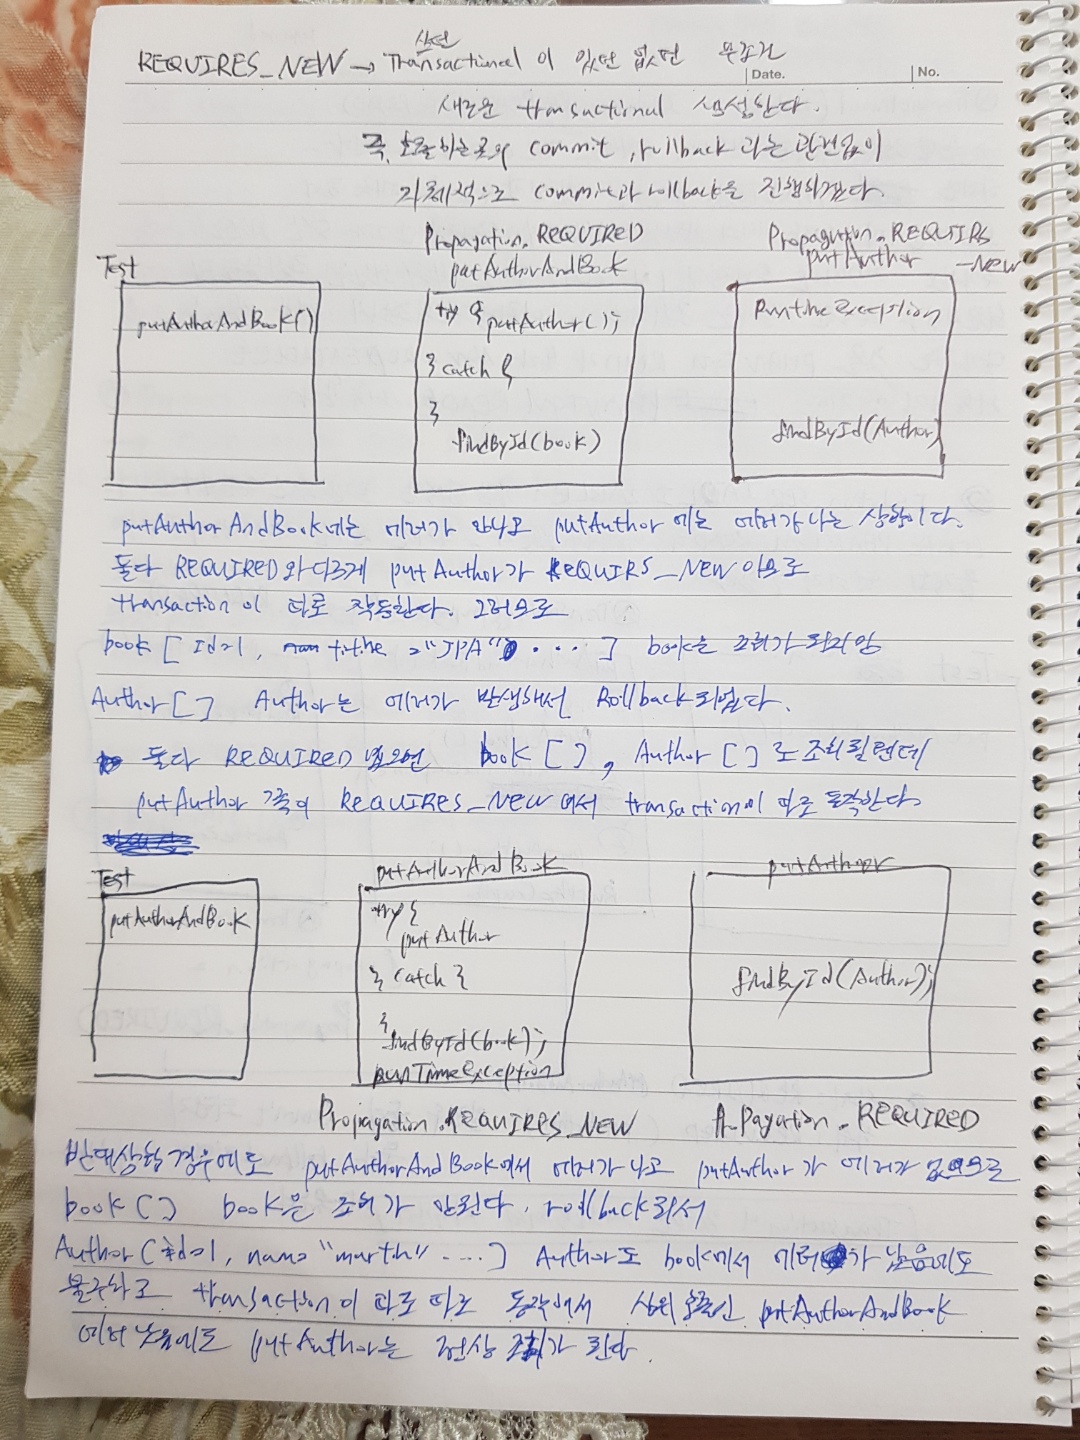 상단
REQUIRES_NEW → Transactional 이 있던 없던 무조건
Date.
No.
새로운 transactional 생성한다.
즉, 호출하는곳의 commit, rollback 과는 관련없이
자체적으로 commit과 rollback을 진행하겠다.
Propagation.REQUIRED
Propagation.REQUIRS
_NEW
Test
putAuthorAndBook
putAuthor
putAuthorAndBook()
try {
putAuthor();
} catch {
}
findById(book)
RuntimeException
findById(Author)
putAuthorAndBook에는 에러가 안나고 putAuthor 에는 에러가 나는 상황이다.
둘다 REQUIRED와 다르게 putAuthor가 REQUIRS_NEW 이므로
transaction이 따로 작동한다. 그러므로
book [ id=1, title ="JPA" ....] book은 조회가 되지만
Author[] Author는 에러가 발생해서 Rollback되었다.
둘다 REQUIRED 였으면 book [], Author [] 로 조회될텐데
putAuthor 쪽이 REQUIRES_NEW 여서 transaction이 따로 동작한다
Test
putAuthorAndBook
putAuthor
putAuthorAndBook
try {
putAuthor
} catch {
}
findById(book);
runTimeException
findById(Author);
Propagation.REQUIRES_NEW
REQUIRED
반대상황 경우에도 putAuthorAndBook에서 에러가 나고 putAuthor가 에러가 없으므로
book [] book은 조회가 안된다. rollback되서
Author [id=1, name "marth" ....] Author도 book에서 에러가 났음에도
불구하고 transaction이 따로 따로 동작해서 상위 호출인 putAuthorAndBook
에러 났음에도 putAuthor는 정상 조회가 된다.